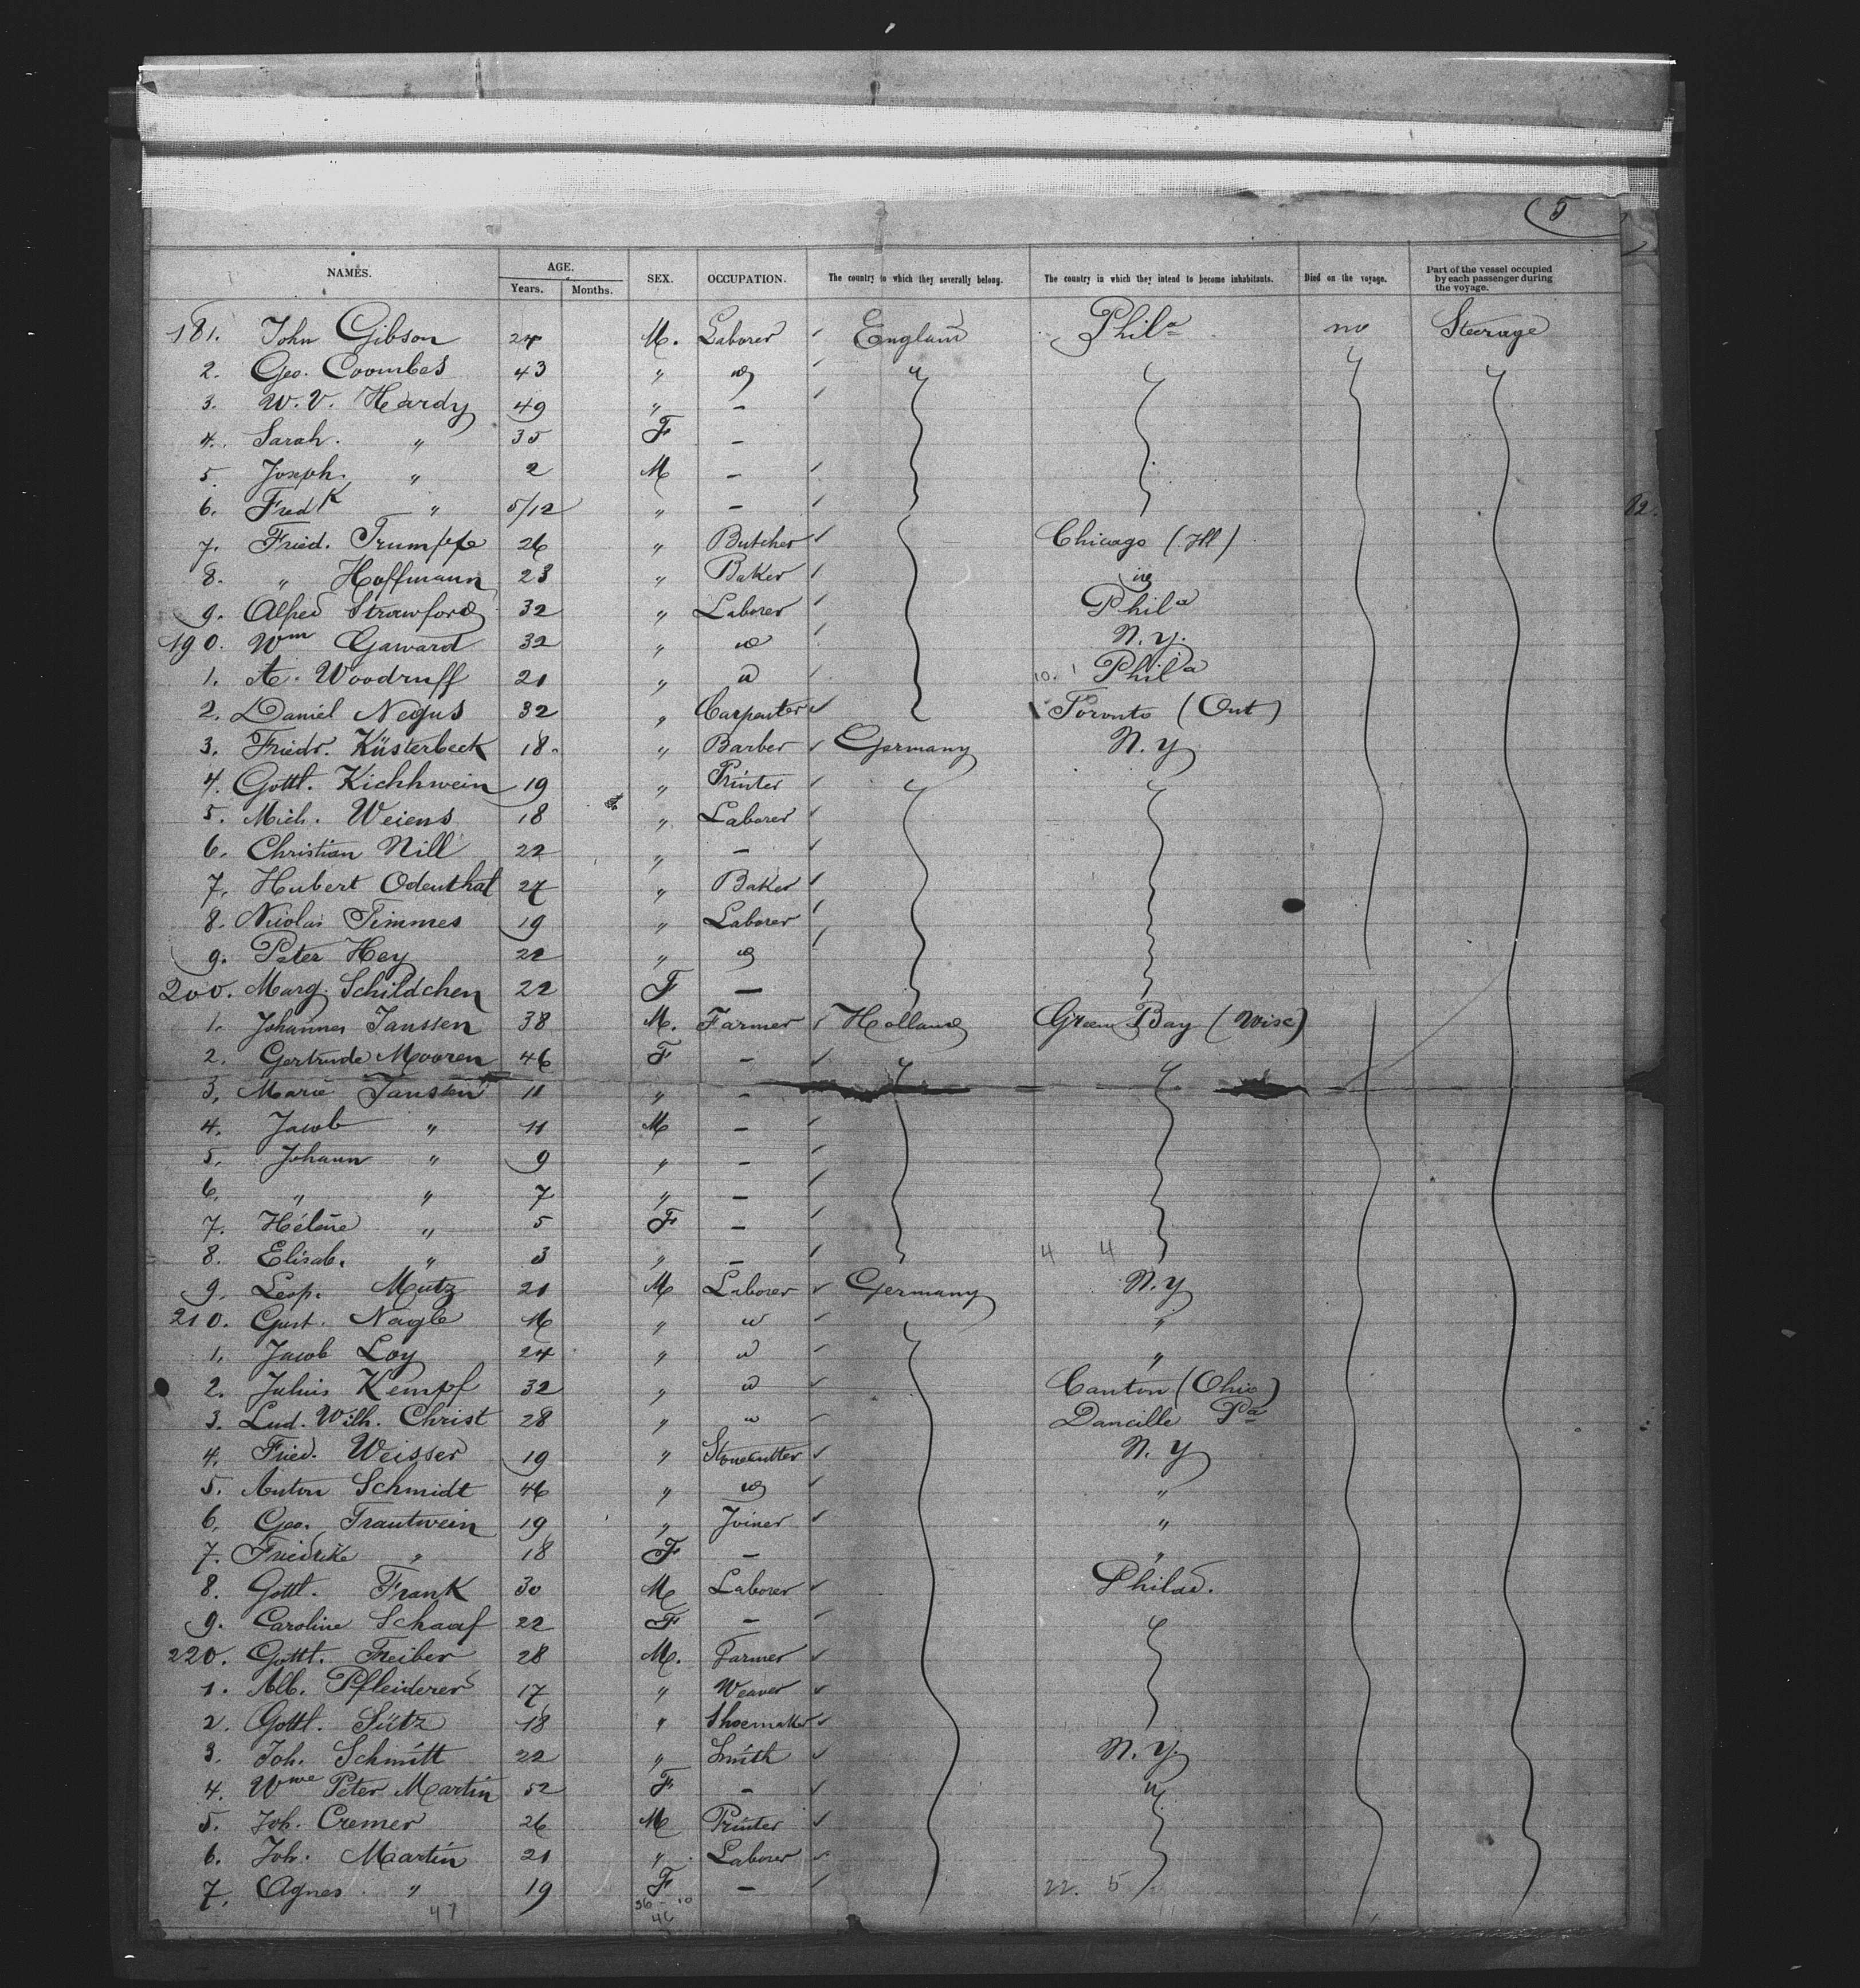 5
NAMES. AGE. SEX. OCCUPATION. The country to which they severally belong. The country in which they intend to become inhabitants. Died on the voyage. Part of the vessel occupied by each passenger during the voyage.
Years. Months.
181. John Gibson 24 M. Laborer England Phila no Steerage
2. Geo. Coombes 43 " do
3. W. V. Hardy 49 " –
4. Sarah. " 35 F –
5. Joseph. " 2 M –
6. Fredk " 5/12 " –
7. Fried. Trumpfe 26 " Butcher Chicago (Ill)
8. " Hoffmann 23 " Baker
9. Alfred Strawford 32 " Laborer Phila
190. Wm Gaward 32 " do N.Y.
1. A. Woodruff 21 " do 10. 1 Phila
2. Daniel Negus 32 " Carpenter Toronto (Ont)
3. Friedr. Küsterbeck 18 " Barber Germany N.Y
4. Gottl. Kichhwein 19 " Printer
5. Mich. Weiens 18 " Laborer
6. Christian Nill 22 " –
7. Hubert Odenthal 27 " Baker
8. Nicolas Timmes 19 " Laborer
9. Peter Hey 22 " do
200. Marg. Schildchen 22 F –
1. Johannes Janssen 38 M. Farmer Holland Green Bay (Wisc)
2. Gertrude Mooren 46 F –
3. Marie Janssen 11 " –
4. Jacob " 11 M –
5. Johann " 9 " –
6. " " 7 " –
7. Hélène " 5 F –
8. Elisab. " 3 " – 4 4
9. Leop. Mutz 21 M Laborer Germany N.Y
210. Gust. Nagle " do "
1. Jacob Loy 24 " do "
2. Julius Kempf 32 " do Canton (Ohio)
3. Lud. Wilh. Christ 28 " do Dancille Pa
4. Fried. Weisser 19 " Stonecutter N.Y
5. Anton Schmidt 46 " do "
6. Geo. Trautwein 19 " Joiner "
7. Friedrike " 18 F – "
8. Gottl. Frank 30 M Laborer Philad.
9. Caroline Schaaf 22 F –
220. Gottl. Freiber 28 M. Farmer
1. Alb. Pfleiderer 17 " Weaver
2. Gottl. Sütz 18 " Shoemaker
3. Joh. Schmitt 22 " Smith N.Y.
4. Wwe Peter Martin 52 F – "
5. Joh. Cremer 26 M Printer
6. Joh. Martin 21 " Laborer
7. Agnes " 19 F – 22. 5
47 36 – 10
46